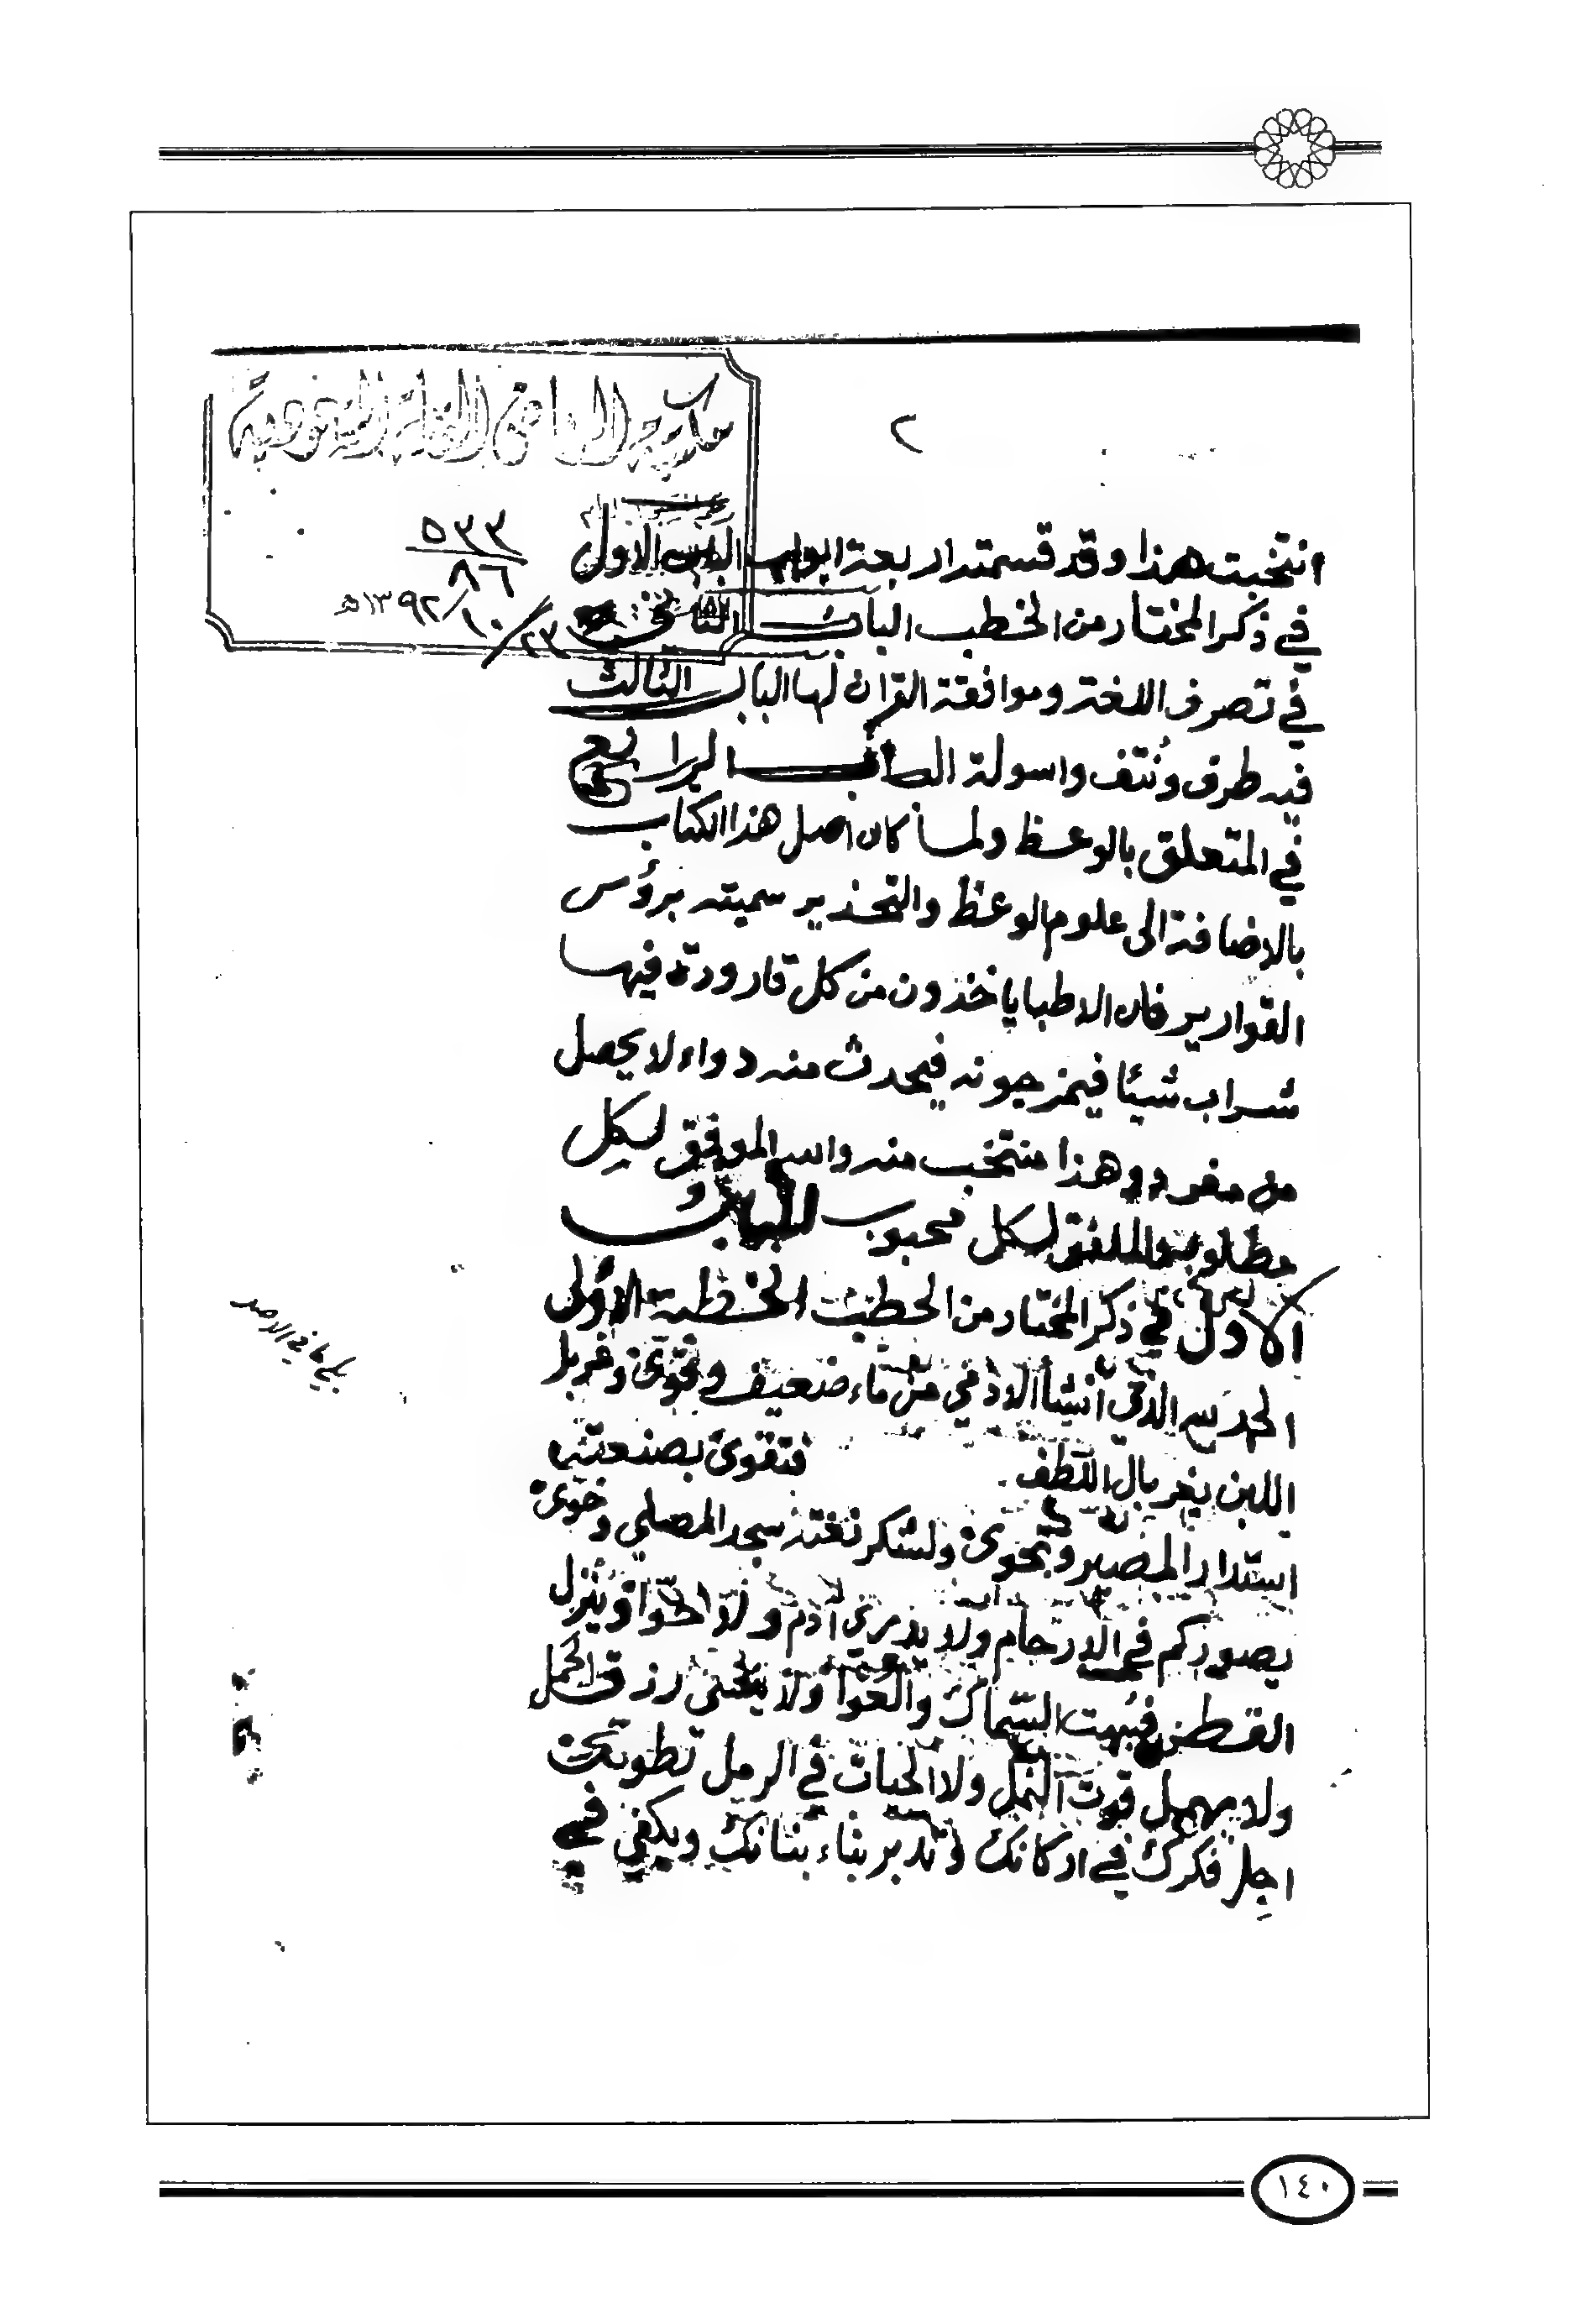 ٢
٥٣٣
٨٦
٢٣/١٠/١٣٩٢هـ
انتخبت هذا وقد قسمته اربعة ابواب الباب الاول
في ذكر المختار من الخطب الباب الثاني
في تصرف اللغة وموافقة القران لها الباب الثالث
فيه طرف ونُتف واسولة الباب الرابع
في المتعلق بالوعظ ولما كان اصل هذا الكتاب
بالاضافة الى علوم الوعظ والتحذير سميته برؤس
القوارير فان الاطبا ياخذون من كل قارورة فيها
شراب شيئا فيمزجونه فيحدث منه دواء لا يحصل
من مفرد وهذا منتخب منه والله الموفق لكل
مطلوب لكل محبوب الباب
الاول في ذكر المختار من الخطب الخطبة الاولى
الحمد لله الذي أنشأ الادمي من ماء ضعيف وغربل
اللبن بغربال اللطف فتقوى بصنعته
استدار المصير وتحوى ولشكر نعمته سجد المصلي وخوى
يصوركم في الارحام ولا يدري آدم ولا حوا وينزل
القطر فبُهت السماك والعوا ولا رزق الحمل
ولا يهمل قوت النمل ولا الحيات في الرمل تطوت
اجل فكرك في اركانك وتدبر بناء بنانك ويكفي في
١٤٠